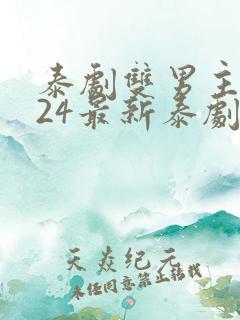 泰劇雙男主
24最新泰劇
天焱纪元
未经同意禁止转载